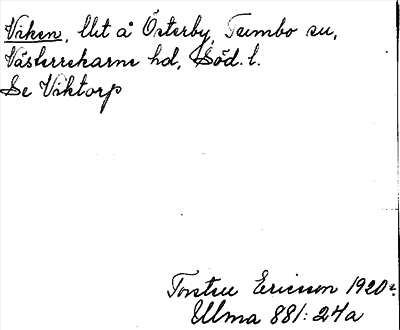 Viken, llt å Österby, Tumbo sn,
Västerrekarne hd, Söd. l.
Se Viktorp
Torsten Ericsson 1920
Ulma 881:24a